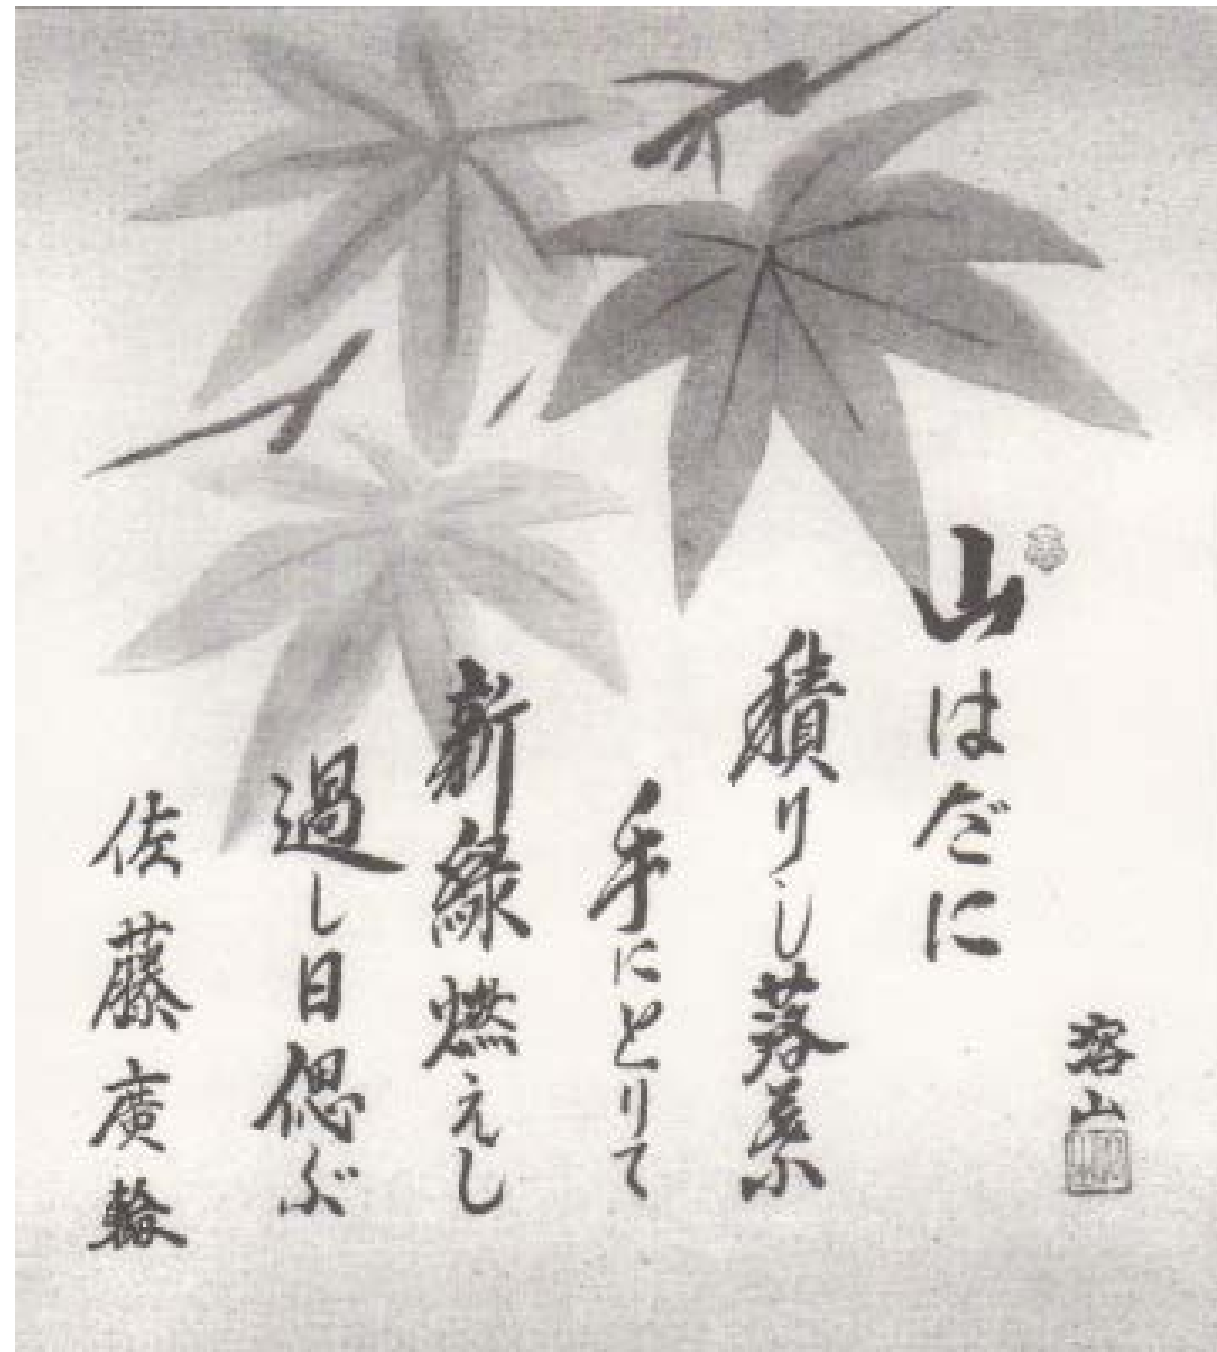 溶山
山はだに
積りし落葉
手にとりて
新緑燃えし
過し日偲ぶ
佐藤廣輪